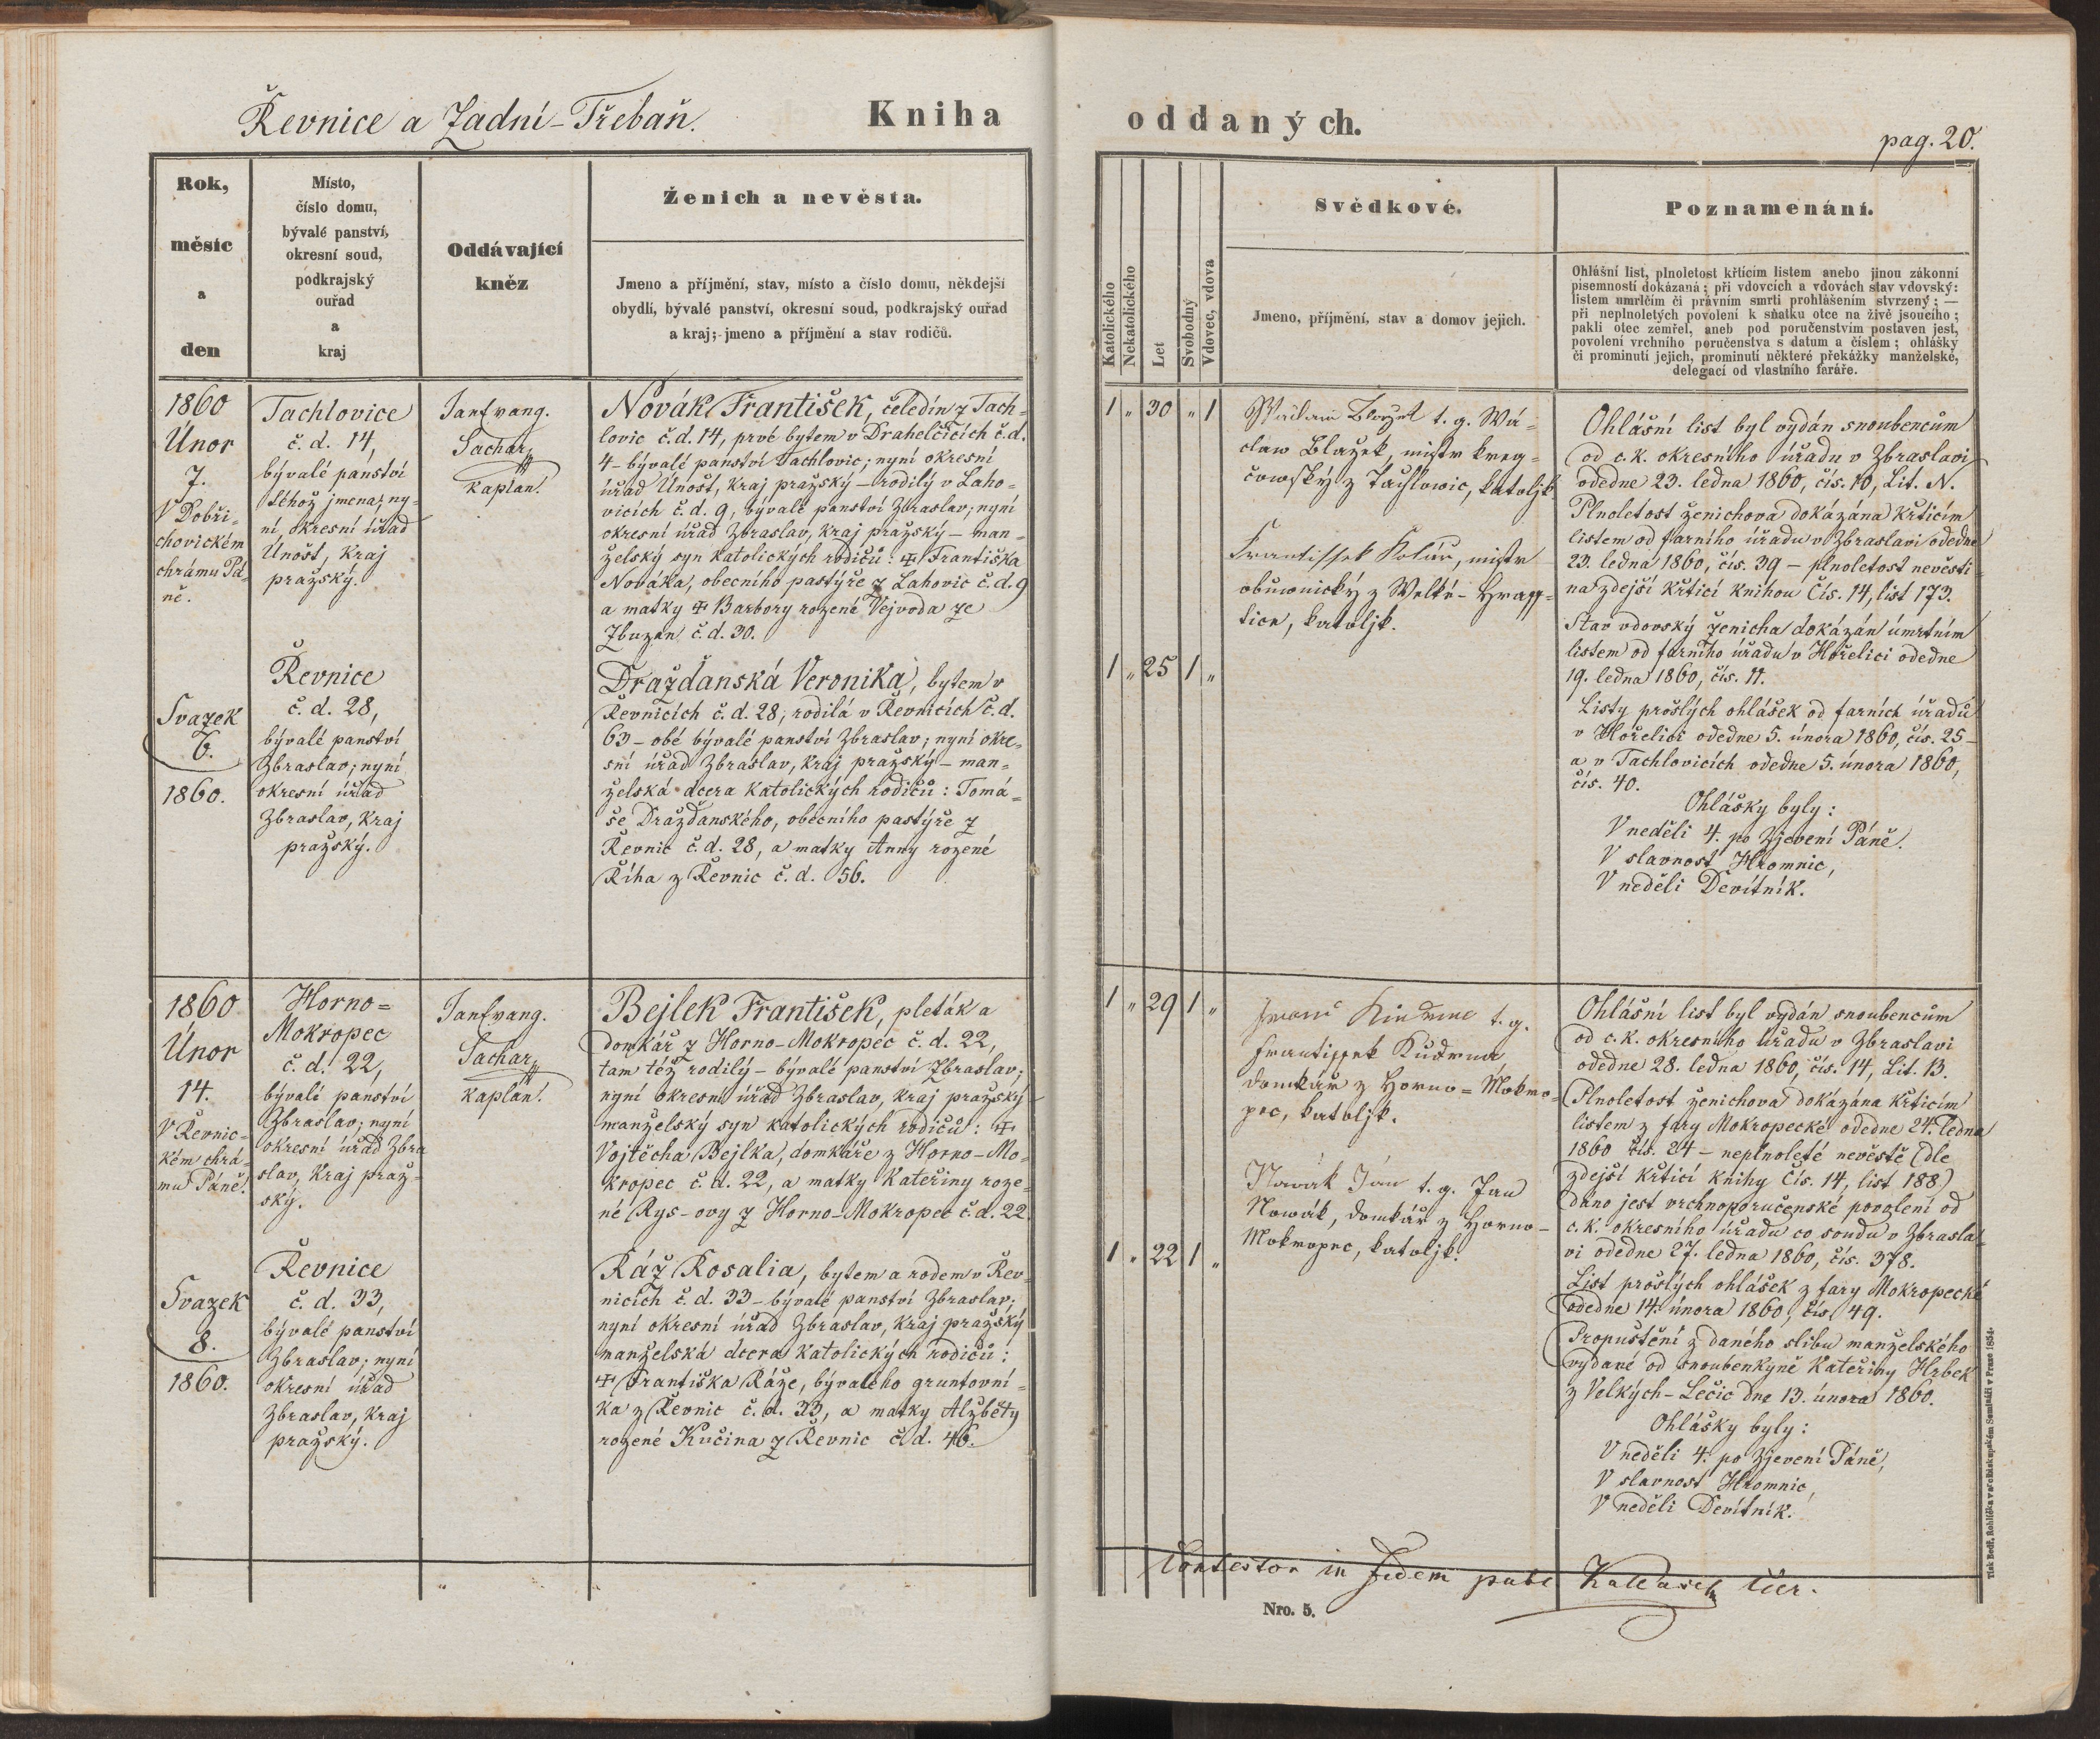 Řevnice a Zadní-Třebaň.
Kniha
Rok,
měsíc
a
den
Místo,
číslo domu,
bývalé panství,
okresní soud,
podkrajský
ouřad
a
kraj
Oddávající
kněz
Ženich a nevěsta.
Jmeno a příjmění, stav, místo a číslo domu, někdejší
obydlí, bývalé panství, okresní soud, podkrajský ouřad
a kraj; jmeno a příjmění a stav rodičů.
1860
Únor
7.
V Dobři-
chovickém
chrámu Pá-
ně.
Svazek
6.
1860.
Tachlovice
č. d. 14,
bývalé panství
téhož jmena; ny-
ní okresní úřad
Únošť, Kraj
pražský.
Řevnice
č. d. 28,
bývalé panství
Zbraslav; nyní
okresní úřad
Zbraslav, Kraj
pražský.
Jan Evang.
Sachar,
kaplan.
Novák František, čeledín z Tach-
lovic č. d. 14, prvé bytem v Drahelčicích č. d.
4 - bývalé panství Tachlovic; nyní okresní
úřad Únošť, Kraj pražský - rodilý v Laho-
vicích č. d. 9, bývalé panství Zbraslav; nyní
okresní úřad Zbraslav, Kraj pražský - man-
želský syn katolických rodičů: ✝ Františka
Nováka, obecního pastýře z Lahovic č. d. 9
a matky ✝ Barbory rozené Vejvoda ze
Zbuzan č. d. 30.
Draždanská Veronika, bytem v
Řevnicích č. d. 28, rodilá v Řevnicích č. d.
63 - obé bývalé panství Zbraslav; nyní okre-
sní úřad Zbraslav, Kraj pražský - man-
želská dcera Katolických rodičů: Tomá-
še Draždanského, obecního pastýře z
Řevnic č. d. 28, a matky Anny rozené
Říha z Řevnic č. d. 56.
1860
Únor
14.
V Řevnic-
kém chrá-
mu Páně.
Svazek
8.
1860.
Horno-
Mokropec
č. d. 22,
bývalé panství
Zbraslav; nyní
okresní úřad Zbra
slav, Kraj praž-
ský.
Řevnice
č. d. 33,
bývalé panství
Zbraslav; nyní
okresní úřad
Zbraslav, Kraj
pražský.
Jan Evang.
Sachar,
kaplán.
Bejlek František, pleták a
domkář z Horno-Mokropec č. d. 22,
tam též rodilý - bývalé panství Zbraslav;
nyní okresní úřad Zbraslav, Kraj pražský
manželský syn katolických rodičů: ✝
Vojtěcha Bejlka, domkáře z Horno-Mo-
kropec č. d. 22, a matky Kateřiny roze-
né Rys-ovy z Horno-Mokropec č. d. 22.
Ráž Rosalia, bytem a rodem v Řev-
nicích č. d. 33 - bývalé panství Zbraslav;
nyní okresní úřad Zbraslav, Kraj pražský
manželská dcera Katolických rodičů:
✝ Františka Ráže, bývalého gruntovní-
ka z Řevnic č. d. 33, a matky Alžběty
rozené Kučina z Řevnic č. d. 46.
oddaných.
pag. 20.
Katolického
Nekatolického
Let
Svobodný
Vdovec, vdova
Svědkové.
Jmeno, příjmění, stav a domov jejich.
Poznamenání.
Ohlášní list, plnoletost křtícím listem anebo jinou zákonní
písemností dokázaná; při vdovcích a vdovách stav vdovský:
listem umrlčím či právním smrti prohlášením stvrzený; —
při neplnoletých povolení k sňatku otce na živě jsoucího;
pakli otec zemřel, aneb pod poručenstvím postaven jest,
povolení vrchního poručenstva s datum a číslem; ohlášky
či prominutí jejich, prominutí některé překážky manželské,
delegací od vlastního faráře.
1 „ 30 „ 1
t. g. Wá-
claw Blažek, mistr kreg-
čowský z Tachlowic, katoljk
Frantissek Kolář, mistr
obuwnický z Welké-
katoljk.
1 „ 25 1 „
Ohlášní list byl vydán snoubencům
od c. k. okresního úřadu v Zbraslavi
ododne 23. ledna 1860, čís. 10, Lit. N.
Plnoletost ženichova dokázána křticím
listem od farního úřadu v Zbraslavi ododne
23. ledna 1860, čís. 39 - plnoletost nevěsti-
na zdejší křticí knihou Čís. 14, list 173.
Stav vdovský ženicha dokázán úmrtním
listem od farního úřadu v Hořelici ododne
19. ledna 1860, čís. 11.
Listy prošlých ohlášek od farních úřadů
v Hořelici ododne 5. února 1860, čís. 25 -
a v Tachlovicích ododne 5. února 1860,
čís. 40.
Ohlášky byly:
V neděli 4. po Zjevení Páně.
V slavnost Hromnic,
V neděli Devítník.
1 „ 29 1 „
t. g.
Frantissek Kudrna
domkář z Horno-Mokro-
pec, katoljk.
Nowák Jan t. g. Jan
Nowák, domkář z Horno-
Mokropec, katoljk.
1 „ 22 1 „
Ohlášní list byl vydán snoubencům
od c. k. okresního úřadu v Zbraslavi
ododne 28. ledna 1860, čís. 14, Lit. B.
Plnoletost ženichova dokázána křticím
listem z fary Mokropecké ododne 24. ledna
1860 čís. 24 - neplnoleté nevěstě (dle
zdejší křticí knihy Čís. 14, list 188)
dáno jest vrchnoporučenské povolení od
c. k. okresního úřadu co soudu v Zbrasla-
vi ododne 27. ledna 1860, čís. 378.
List prošlých ohlášek z fary Mokropecké
ododne 14. února 1860, čís. 49.
Propuštění z daného slibu manželského
vydané od snoubenkyně Kateřiny Hrbek
z Velkých-Lečic dne 13. února 1860.
Ohlášky byly:
V neděli 4. po Zjevení Páně,
V slavnost Hromnic,
V neděli Devítník.
in Fidem
Nro. 5.